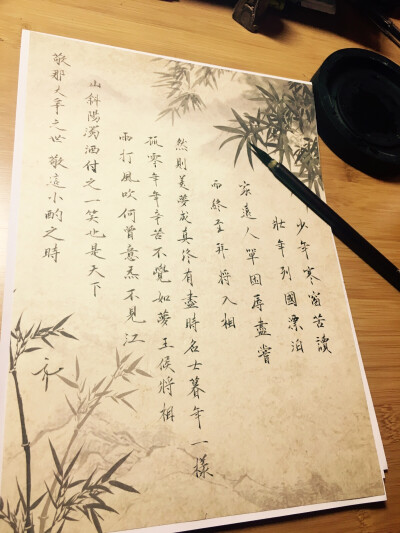 少年寒窗苦讀
壯年列國漂泊
家遠人單困辱盡嘗
而終至拜將入相
然則美夢成真終有盡時名士暮年一樣
孤零年年辛苦不覺如夢王侯將相
雨打風吹何曾意炁不見江
山斜陽濁酒付之一笑也是天下
敬那大爭之世 敬這小酌之時